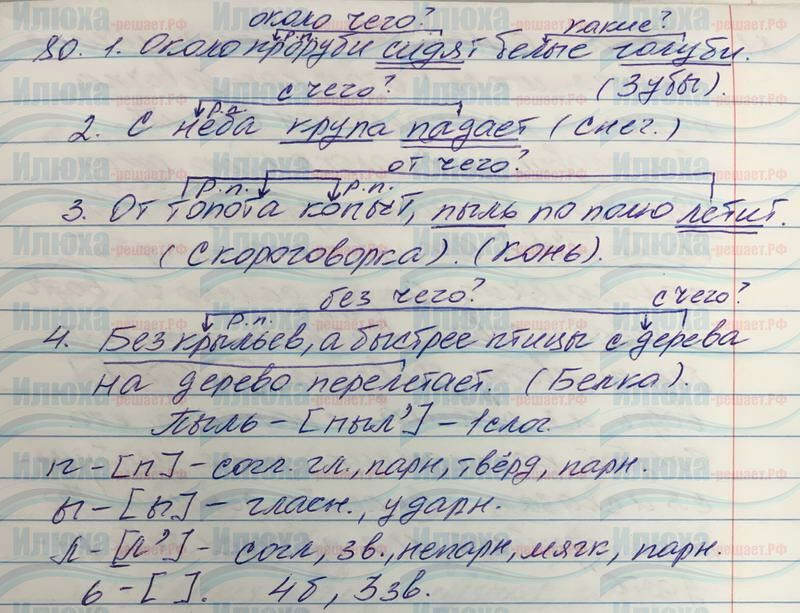 около чего? какие?
р.п.
80. 1. Около проруби сидят белые голуби.
с чего? (Зубы).
р.п.
2. С неба крупа падает (снег.)
от чего?
р.п. р.п.
3. От топота копыт, пыль по полю летит.
(Скороговорка). (Конь).
без чего? с чего?
р.п.
4. Без крыльев, а быстрее птицы с дерева
на дерево перелетает. (Белка).
Пыль - [пыл'] - 1 слог.
п - [п] - согл. гл., парн, твёрд, парн.
ы - [ы] - гласн., ударн.
л - [л'] - согл, зв., непарн, мягк, парн.
ь - [ ]. 4б, 3зв.
Илюха-решает.рф